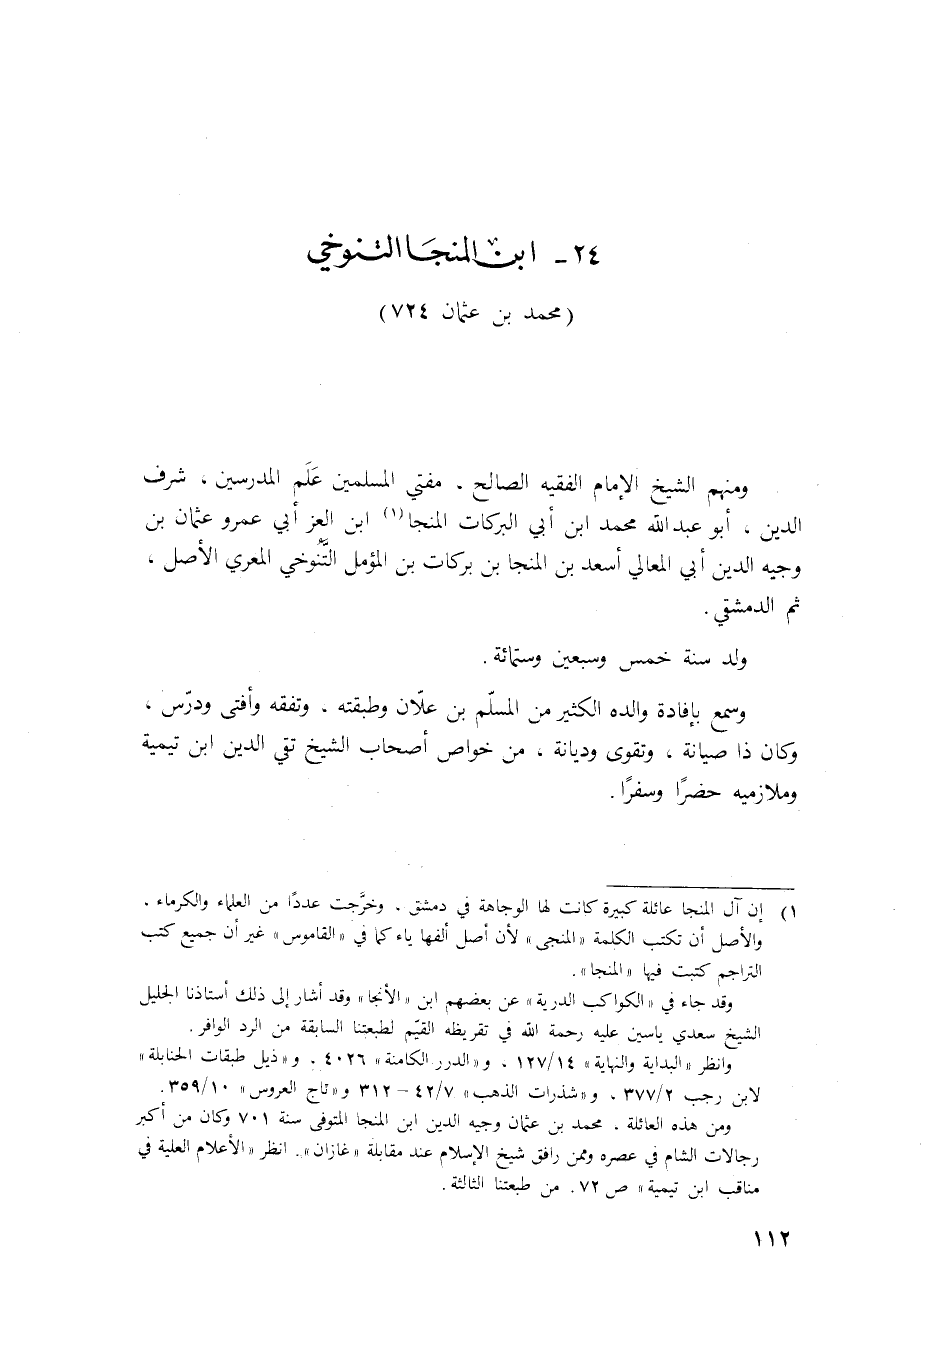 ٢٤ - ابن المنجا التنوخي
(محمد بن عثمان ٧٢٤)
ومنهم الشيخ الإمام الفقيه الصالح . مفتي المسلمين عَلَم المدرسين ، شرف
الدين ، أبو عبدالله محمد ابن أبي البركات المنجا(١) ابن العز أبي عمرو عثمان بن
وجيه الدين أبي المعالي أسعد بن المنجا بن بركات بن المؤمل التَّنوخي المعري الأصل ،
ثم الدمشقي .
ولد سنة خمس وسبعين وستمائة .
وسمع بإفادة والده الكثير من المسلّم بن علّان وطبقته ، وتفقه وأفتى ودرّس ،
وكان ذا صيانة ، وتقوى وديانة ، من خواص أصحاب الشيخ تقي الدين ابن تيمية
وملازميه حضرًا وسفرًا .
١) إن آل المنجا عائلة كبيرة كانت لها الوجاهة في دمشق . وخرَّجت عددًا من العلماء والكرماء .
والأصل أن تكتب الكلمة «المنجى» لأن أصل ألفها ياء كما في «القاموس» غير أن جميع كتب
التراجم كتبت فيها «المنجا» .
وقد جاء في «الكواكب الدرية» عن بعضهم ابن «الأنجا» وقد أشار إلى ذلك أستاذنا الجليل
الشيخ سعدي ياسين عليه رحمة الله في تقريظه القيّم لطبعتنا السابقة من الرد الوافر .
وانظر «البداية والنهاية» ١٢٧/١٤ ، و«الدرر الكامنة» ٤٠٢٦ . و«ذيل طبقات الحنابلة»
لابن رجب ٣٧٧/٢ ، و«شذرات الذهب» ٤٢/٧ – ٣١٢ و«تاج العروس» ٣٥٩/١٠ .
ومن هذه العائلة . محمد بن عثمان وجيه الدين ابن المنجا المتوفى سنة ٧٠١ وكان من أكبر
رجالات الشام في عصره وممن رافق شيخ الإسلام عند مقابلة «غازان» . انظر «الأعلام العلية في
مناقب ابن تيمية» ص ٧٢ . من طبعتنا الثالثة .
١١٢